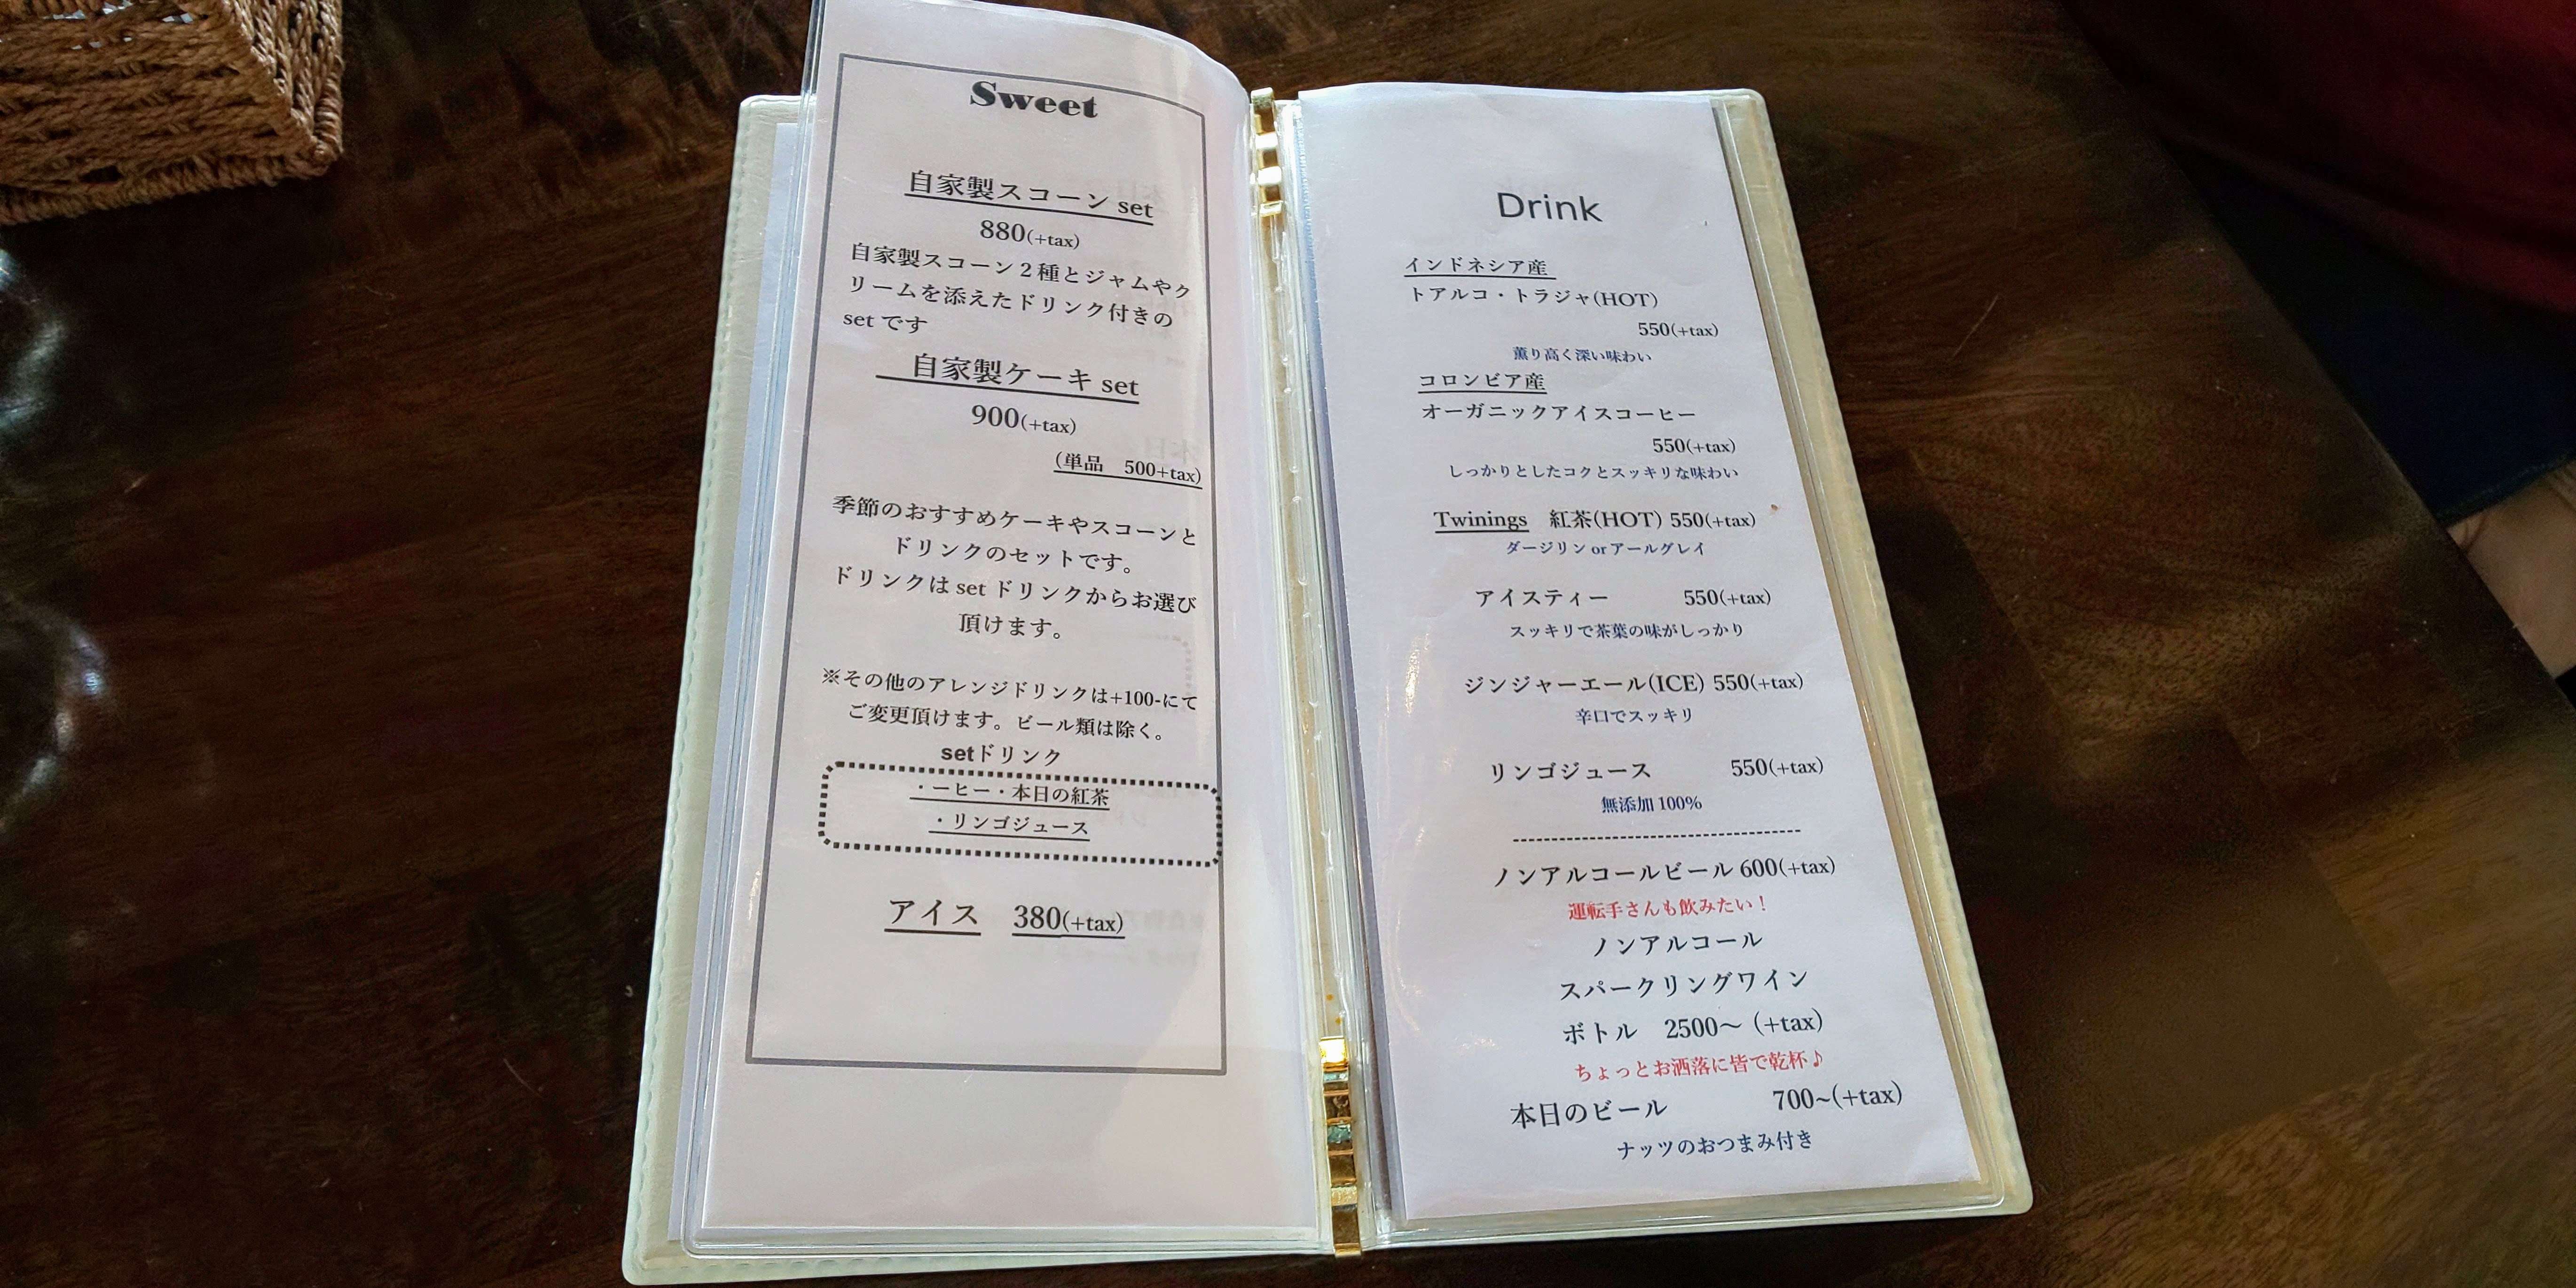 Sweet
自家製スコーン set
880(+tax)
自家製スコーン２種とジャムやク
リームを添えたドリンク付きの
set です
自家製ケーキ set
900(+tax)
(単品　500+tax)
季節のおすすめケーキやスコーンと
ドリンクのセットです。
ドリンクは set ドリンクからお選び
頂けます。
※その他のアレンジドリンクは+100-にて
ご変更頂けます。ビール類は除く。
setドリンク
・ーヒー・本日の紅茶
・リンゴジュース
アイス　380(+tax)
Drink
インドネシア産
トアルコ・トラジャ(HOT)
550(+tax)
薫り高く深い味わい
コロンビア産
オーガニックアイスコーヒー
550(+tax)
しっかりとしたコクとスッキリな味わい
Twinings　紅茶(HOT) 550(+tax)
ダージリン or アールグレイ
アイスティー　550(+tax)
スッキリで茶葉の味がしっかり
ジンジャーエール(ICE) 550(+tax)
辛口でスッキリ
リンゴジュース　550(+tax)
無添加 100%
--------------------------------------
ノンアルコールビール 600(+tax)
運転手さんも飲みたい！
ノンアルコール
スパークリングワイン
ボトル　2500〜（+tax)
ちょっとお洒落に皆で乾杯♪
本日のビール　700~(+tax)
ナッツのおつまみ付き